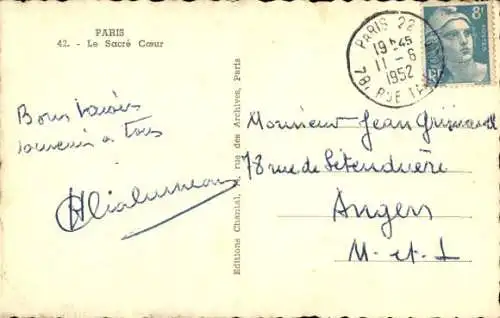 PARIS
42. - Le Sacré Cœur
PARIS 22
19H45
11 - 6
1952
78, RUE
8F
Bons baisers
souvenir à tous
Editions Chantal, rue des Archives, Paris
Monsieur Jean
78 rue de Létenduère
Angers
M - et - L